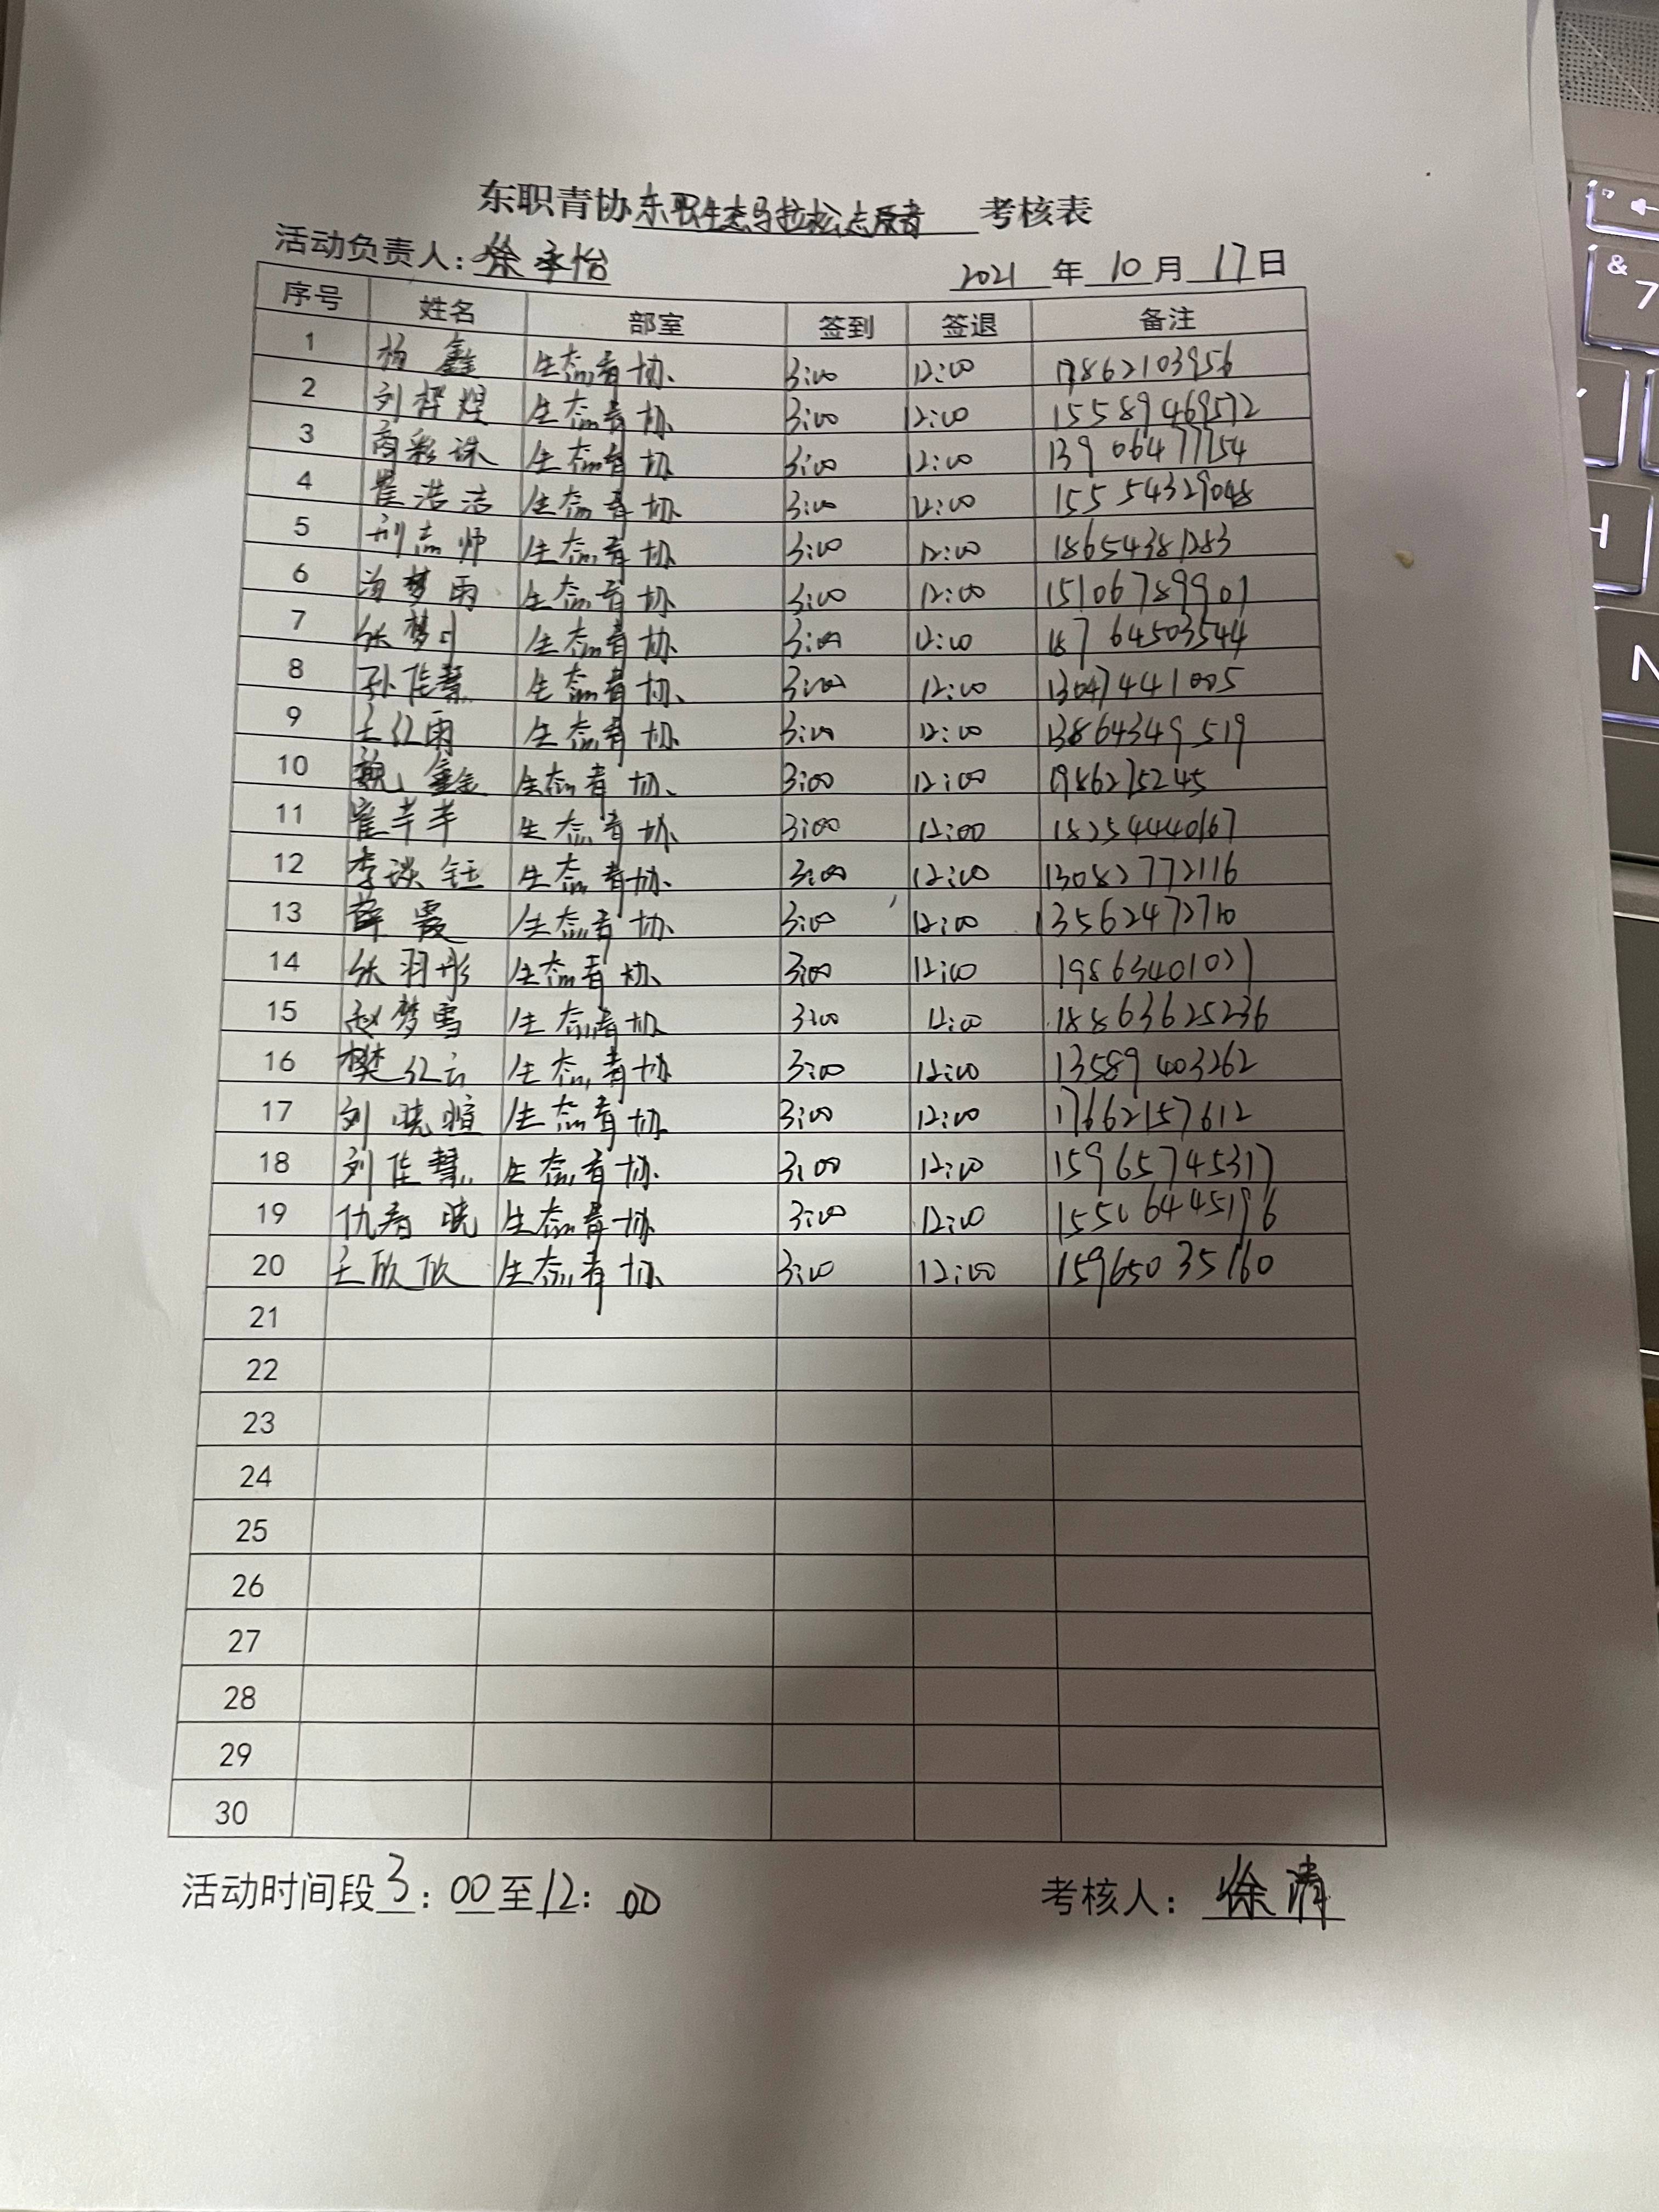 东职青协东职生态马拉松志愿者 考核表
活动负责人：徐永怡 2021 年 10 月 17 日
序号 姓名 部室 签到 签退 备注
1 杨鑫 生态青协 3:00 12:00 17862103956
2 刘梓煜 生态青协 3:00 12:00 15589469572
3 商彩珠 生态青协 3:00 12:00 13906477154
4 翟浩洁 生态青协 3:00 12:00 15554329048
5 荆志帅 生态青协 3:00 12:00 18654381283
6 梦雨 生态青协 3:00 12:00 15106789901
7 张梦 生态青协 3:00 12:00 18764503544
8 孙佳慧 生态青协 3:00 12:00 13047441005
9 王红雨 生态青协 3:00 12:00 13864349519
10 魏鑫 生态青协 3:00 12:00 1986275245
11 崔芊芊 生态青协 3:00 12:00 18254440167
12 李谈钰 生态青协 3:00 12:00 13082772116
13 薛霞 生态青协 3:00 12:00 13562472710
14 张羽彤 生态青协 3:00 12:00 19863401021
15 赵梦雪 生态青协 3:00 12:00 18863625236
16 樊红云 生态青协 3:00 12:00 13589403262
17 刘晓暄 生态青协 3:00 12:00 17662157612
18 刘佳慧 生态青协 3:00 12:00 15965745317
19 仇春晓 生态青协 3:00 12:00 15506445196
20 王欣欣 生态青协 3:00 12:00 15965035160
21
22
23
24
25
26
27
28
29
30
活动时间段3：00至12：00 考核人：徐清
&
7
H
N